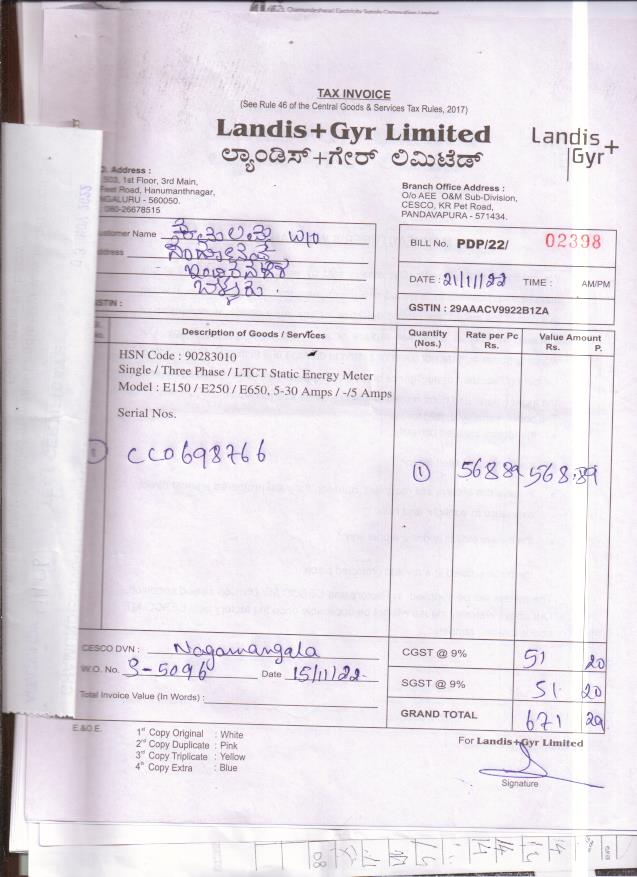 Chamundeshwari Electricity Supply Corporation Limited
TAX INVOICE
(See Rule 46 of the Central Goods & Services Tax Rules, 2017)
Landis+Gyr Limited
ಲ್ಯಾಂಡಿಸ್+ಗೇರ್ ಲಿಮಿಟೆಡ್
Landis+
Gyr
Address :
1st Floor, 3rd Main,
Road, Hanumanthnagar,
- 560050.
080-26678515
Branch Office Address :
O/o AEE O&M Sub-Division,
CESCO, KR Pet Road,
PANDAVAPURA - 571434.
Customer Name W/o
BILL No. PDP/22/ 02398
DATE : 21/11/22 TIME : AM/PM
GSTIN : 29AAACV9922B1ZA
Description of Goods / Services Quantity (Nos.) Rate per Pc Rs. Value Amount Rs. P.
HSN Code : 90283010
Single / Three Phase / LTCT Static Energy Meter
Model : E150 / E250 / E650, 5-30 Amps / -/5 Amps
Serial Nos.
CC0698766 1 568.89 568.89
CESCO DVN : Nagamangala
W.O. No. S-5096 Date 15/11/22
Total Invoice Value (In Words) :
CGST @ 9% 51 20
SGST @ 9% 51 20
GRAND TOTAL 671 29
E.&O.E.
1st Copy Original : White
2nd Copy Duplicate : Pink
3rd Copy Triplicate : Yellow
4th Copy Extra : Blue
For Landis+Gyr Limited
Signature